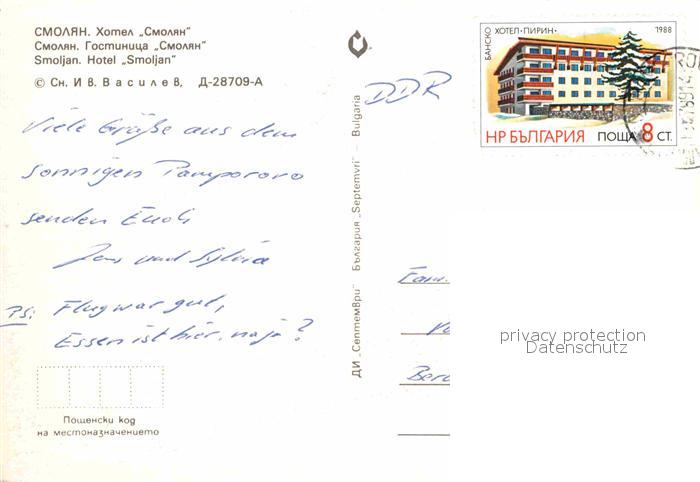 СМОЛЯН. Хотел „Смолян“
Смолян. Гостиница „Смолян“
Smoljan. Hotel „Smoljan“
© Сн. Ив. Василев, Д-28709-А
Viele Grüße aus dem
sonnigen Pamporovo
senden Euch
Jens und Sylvia
PS: Flug war gut,
Essen ist hier, naja?
Пощенски код
на местоназначението
ДИ „Септември“ България „Septemvri“ — Bulgaria
DDR
БАНСКО ХОТЕЛ „ПИРИН“ 1988
НР БЪЛГАРИЯ ПОЩА 8 СТ.
Fam.
privacy protection
Datenschutz